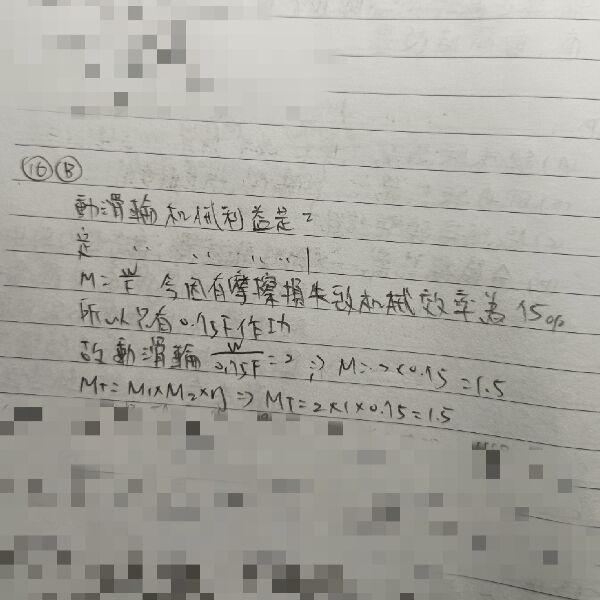 ⑯ Ⓑ
動滑輪机械利益是2
定 〃 〃 〃〃〃 1
M=W/F 今因有摩擦損失致机械效率為75%
所以只有0.75F作功
故動滑輪 W/0.75F=2 ⇒ M=2×0.75=1.5
MT=M1×M2×η ⇒ MT=2×1×0.75=1.5